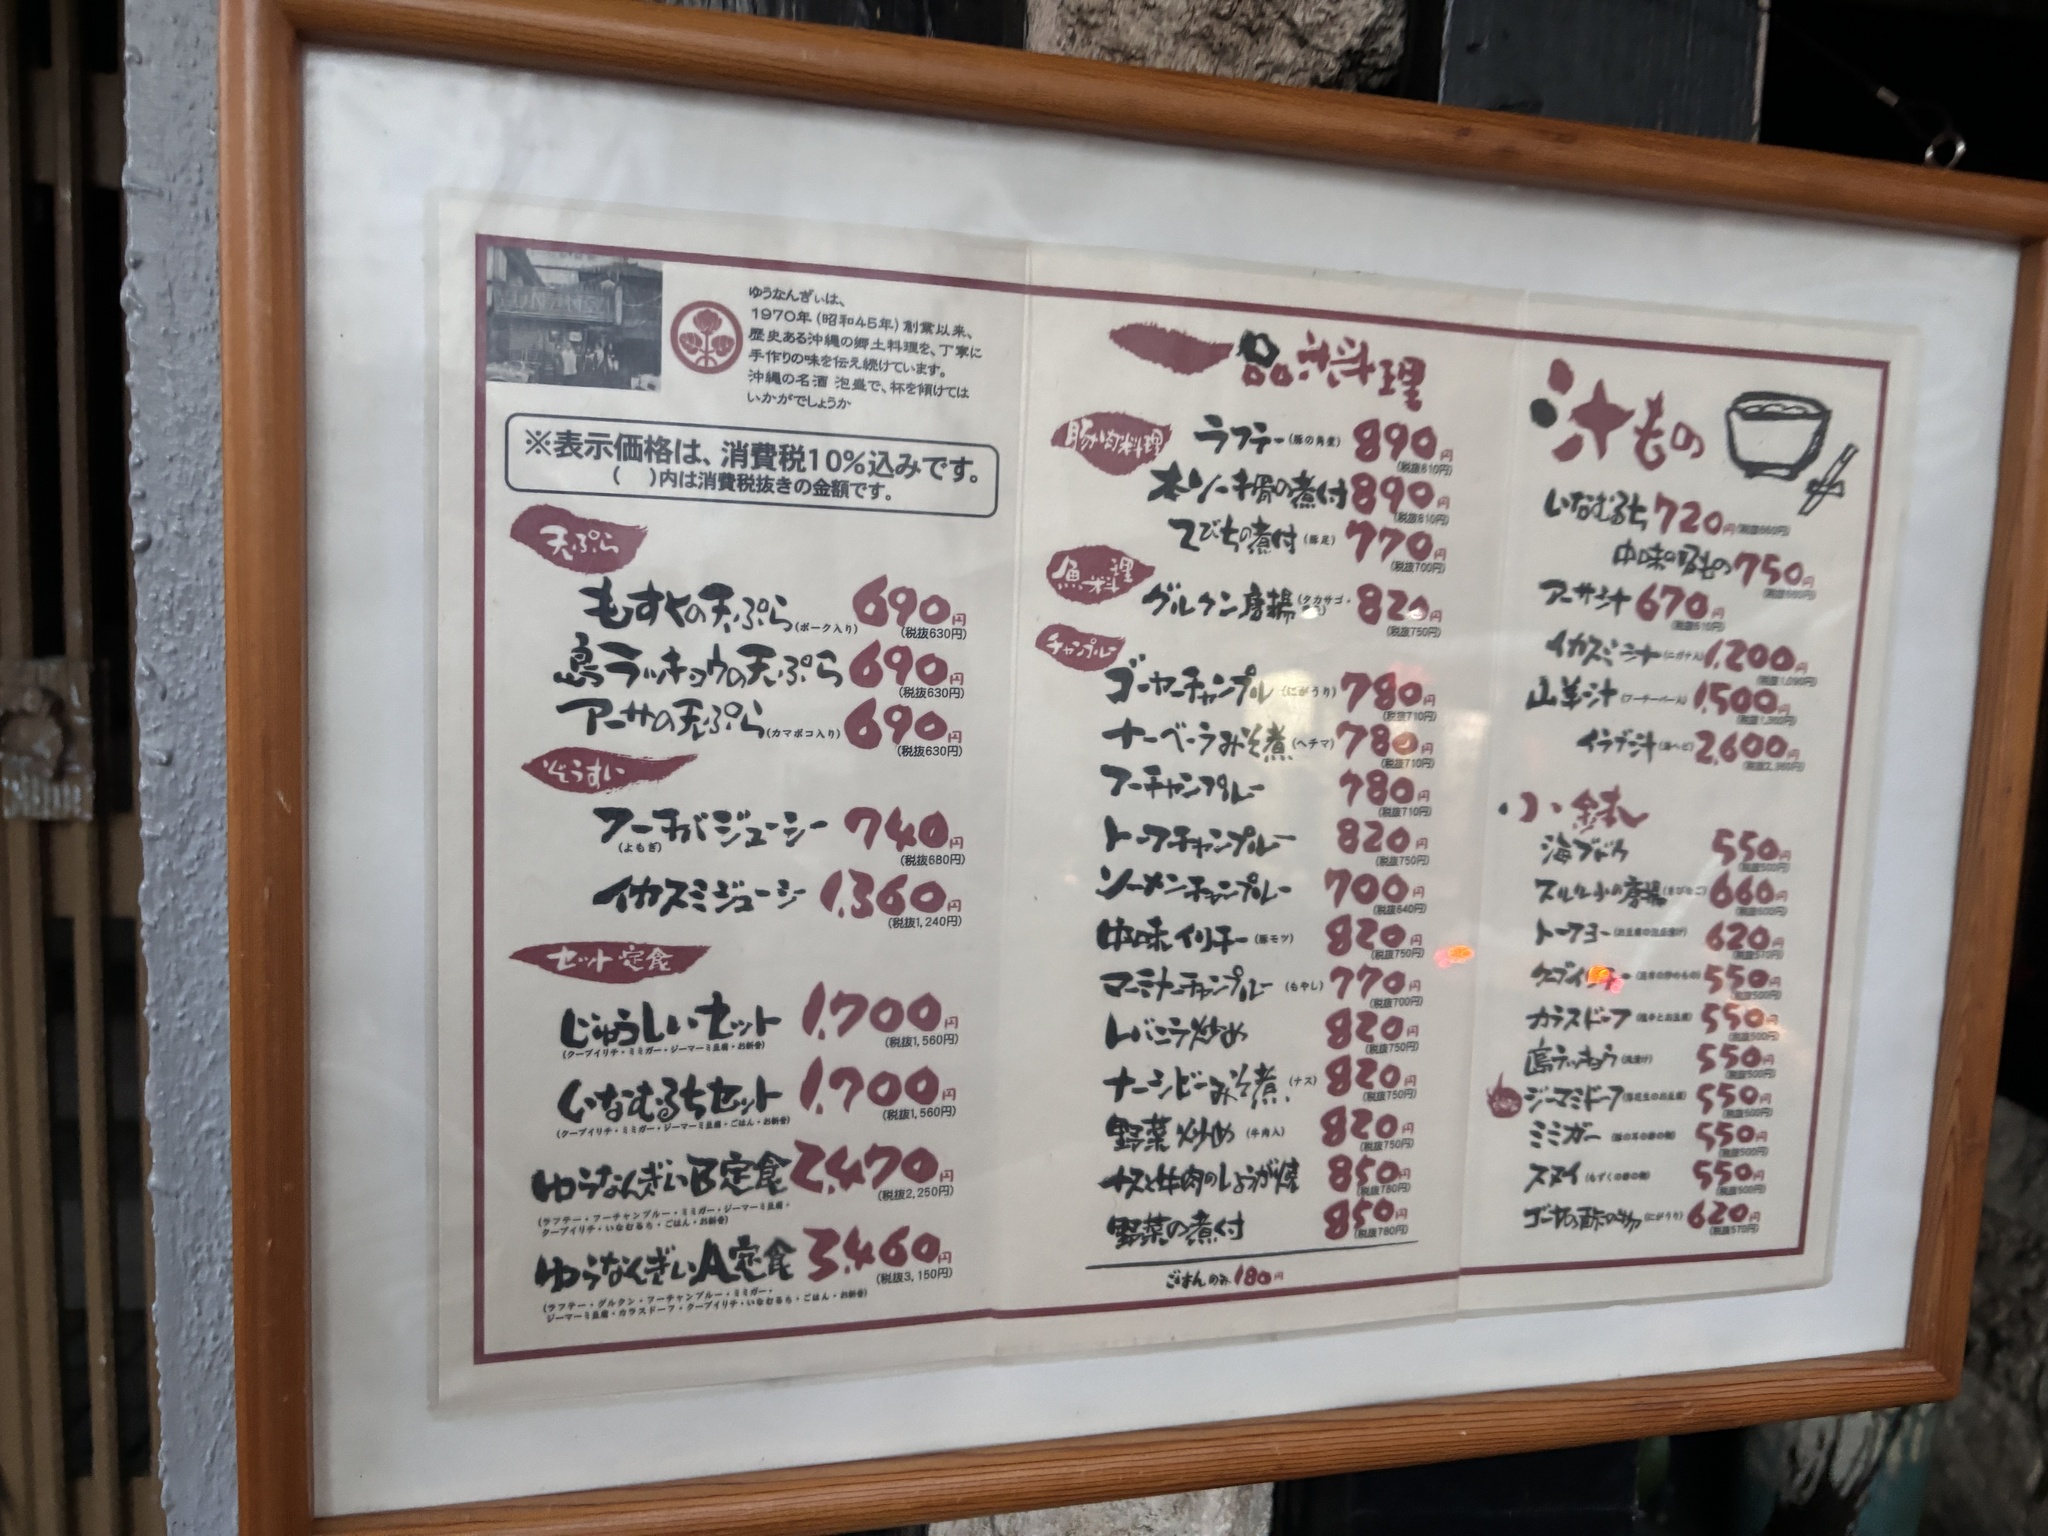 ゆうなんぎぃは、
1970年(昭和45年)創業以来、
歴史ある沖縄の郷土料理を、丁寧に
手作りの味を伝え続けています。
沖縄の名酒 泡盛で、杯を傾けては
いかがでしょうか
※表示価格は、消費税10%込みです。
( )内は消費税抜きの金額です。
天ぷら
もずくの天ぷら(ポーク入り) 690円
(税抜630円)
島ラッキョウの天ぷら 690円
(税抜630円)
アーサの天ぷら(カマボコ入り) 690円
(税抜630円)
ぞうすい
フーチバジューシー 740円
(よもぎ) (税抜680円)
イカスミジューシー 1,360円
(税抜1,240円)
セット定食
じゅうしぃセット 1,700円
(クーブイリチ・ミミガー・ジーマーミ豆腐・お新香) (税抜1,560円)
いなむるちセット 1,700円
(クーブイリチ・ミミガー・ジーマーミ豆腐・ごはん・お新香) (税抜1,560円)
ゆうなんぎぃB定食 2,470円
(税抜2,250円)
(ラフテー・フーチャンプルー・ミミガー・ジーマーミ豆腐・
クーブイリチ・いなむるち・ごはん・お新香)
ゆうなんぎぃA定食 3,460円
(税抜3,150円)
(ラフテー・グルクン・フーチャンプルー・ミミガー・
ジーマーミ豆腐・カラスドーフ・クーブイリチ・いなむるち・ごはん・お新香)
一品料理
豚肉料理
ラフテー(豚の角煮) 890円
(税抜810円)
本ソーキ骨の煮付 890円
(税抜810円)
てびちの煮付(豚足) 770円
(税抜700円)
魚料理
グルクン唐揚(タカサゴ・ 820円
(税抜750円)
チャンプルー
ゴーヤーチャンプル(にがうり) 780円
(税抜710円)
ナーベーラみそ煮(ヘチマ) 780円
(税抜710円)
フーチャンプルー 780円
(税抜710円)
トーフチャンプルー 820円
(税抜750円)
ソーメンチャンプルー 700円
(税抜640円)
中味イリチー(豚モツ) 820円
(税抜750円)
マーミナーチャンプルー(もやし) 770円
(税抜700円)
レバニラ炒め 820円
(税抜750円)
ナーシビーみそ煮(ナス) 820円
(税抜750円)
野菜炒め(牛肉入) 820円
(税抜750円)
ナスと牛肉のしょうが焼 850円
(税抜780円)
野菜の煮付 850円
(税抜780円)
ごはんのみ 180円
汁もの
いなむるち 720円(税抜660円)
中味の吸もの 750円
(税抜680円)
アーサ汁 670円
(税抜610円)
イカスミ汁(ニガナ入) 1,200円
(税抜1,090円)
山羊汁(フーチーバー入) 1,500円
(税抜1,360円)
イラブ汁(海ヘビ) 2,600円
(税抜2,360円)
小鉢
海ブドウ 550円
(税抜500円)
スルル小の唐揚(きびなご) 660円
(税抜600円)
トーフヨー(お豆腐の泡盛漬け) 620円
(税抜570円)
クーブイリチー(昆布の炒めもの) 550円
(税抜500円)
カラスドーフ(塩辛とお豆腐) 550円
(税抜500円)
島ラッキョウ(浅漬け) 550円
(税抜500円)
ジーマミドーフ(落花生のお豆腐) 550円
(税抜500円)
ミミガー(豚の耳の酢の物) 550円
(税抜500円)
スヌイ(もずくの酢の物) 550円
(税抜500円)
ゴーヤの酢の物(にがうり) 620円
(税抜570円)